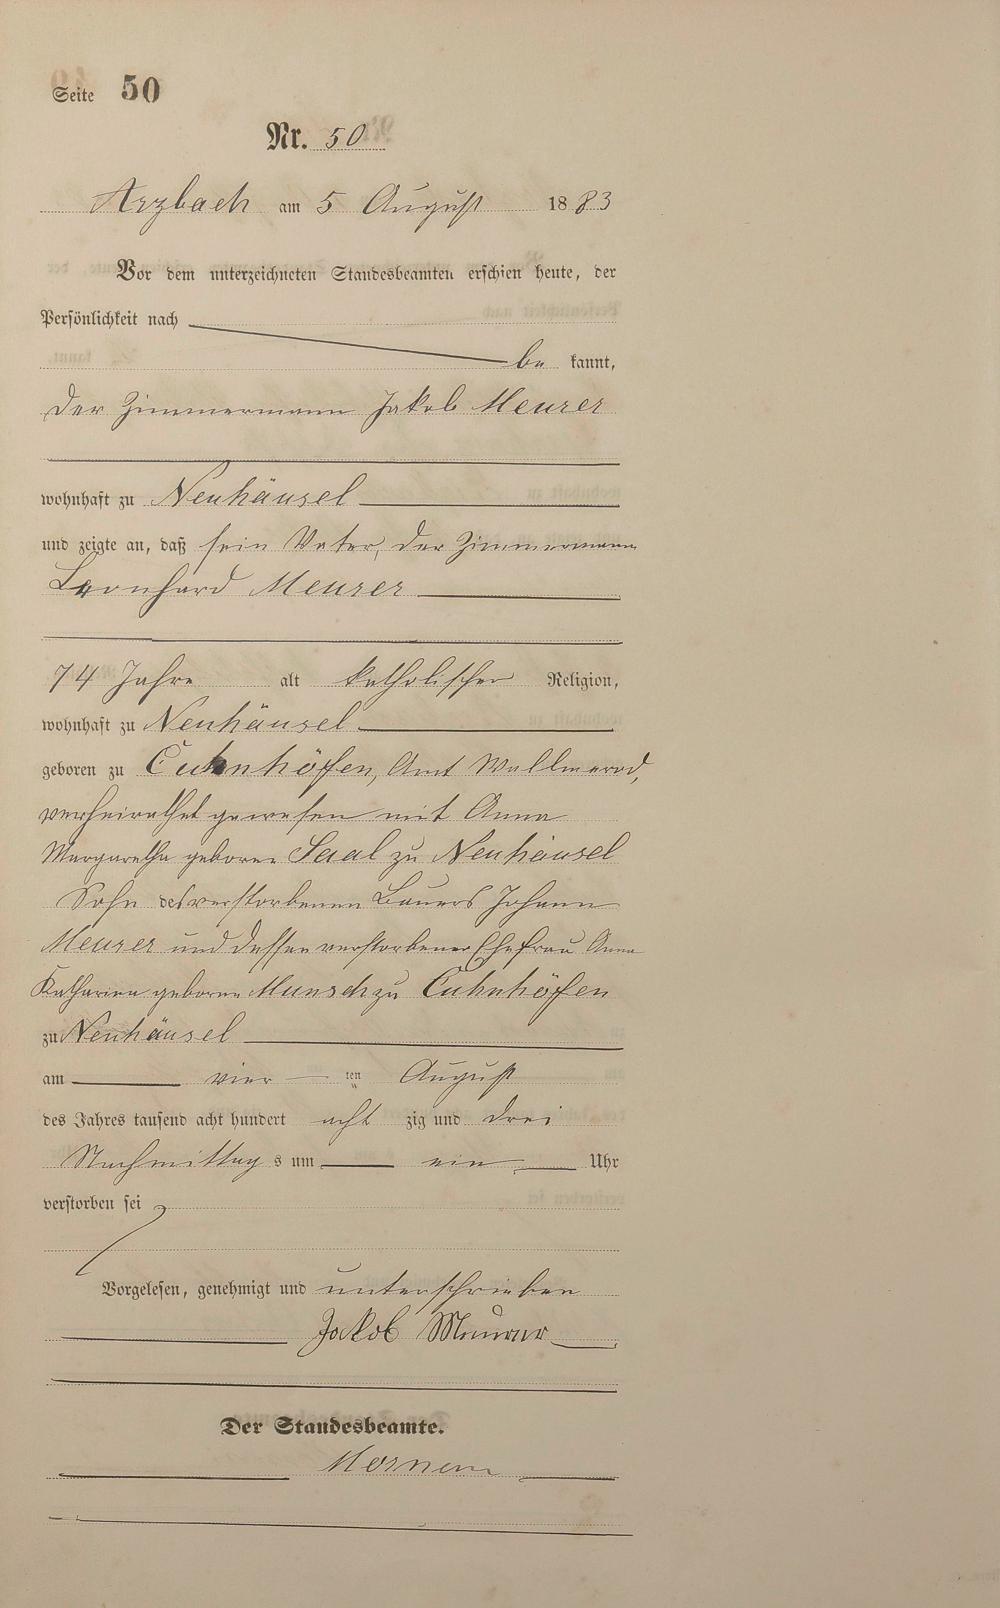 Seite 50
Nr. 50
Arzbach am 5 August 1883
Vor dem unterzeichneten Standesbeamten erschien heute, der
Persönlichkeit nach
be kannt,
der Zimmermann Jakob Meurer
wohnhaft zu Neuhäusel
und zeigte an, daß sein Vater, der Zimmermann
Leonhard Meurer
74 Jahre alt katholischer Religion,
wohnhaft zu Neuhäusel
geboren zu Cuhnhöfen, Amt Wallmerod,
verheirathet gewesen mit Anna
Margaretha geborene Saal zu Neuhäusel
Sohn des verstorbenen Bauers Johann
Meurer und dessen verstorbener Ehefrau Anna
Katharina geborene Munsch zu Cuhnhöfen
zu Neuhäusel
am vier ten August
des Jahres tausend acht hundert acht zig und drei
Nachmittag s um ein Uhr
verstorben sei
Vorgelesen, genehmigt und unterschrieben
Jakob Meurer
Der Standesbeamte.